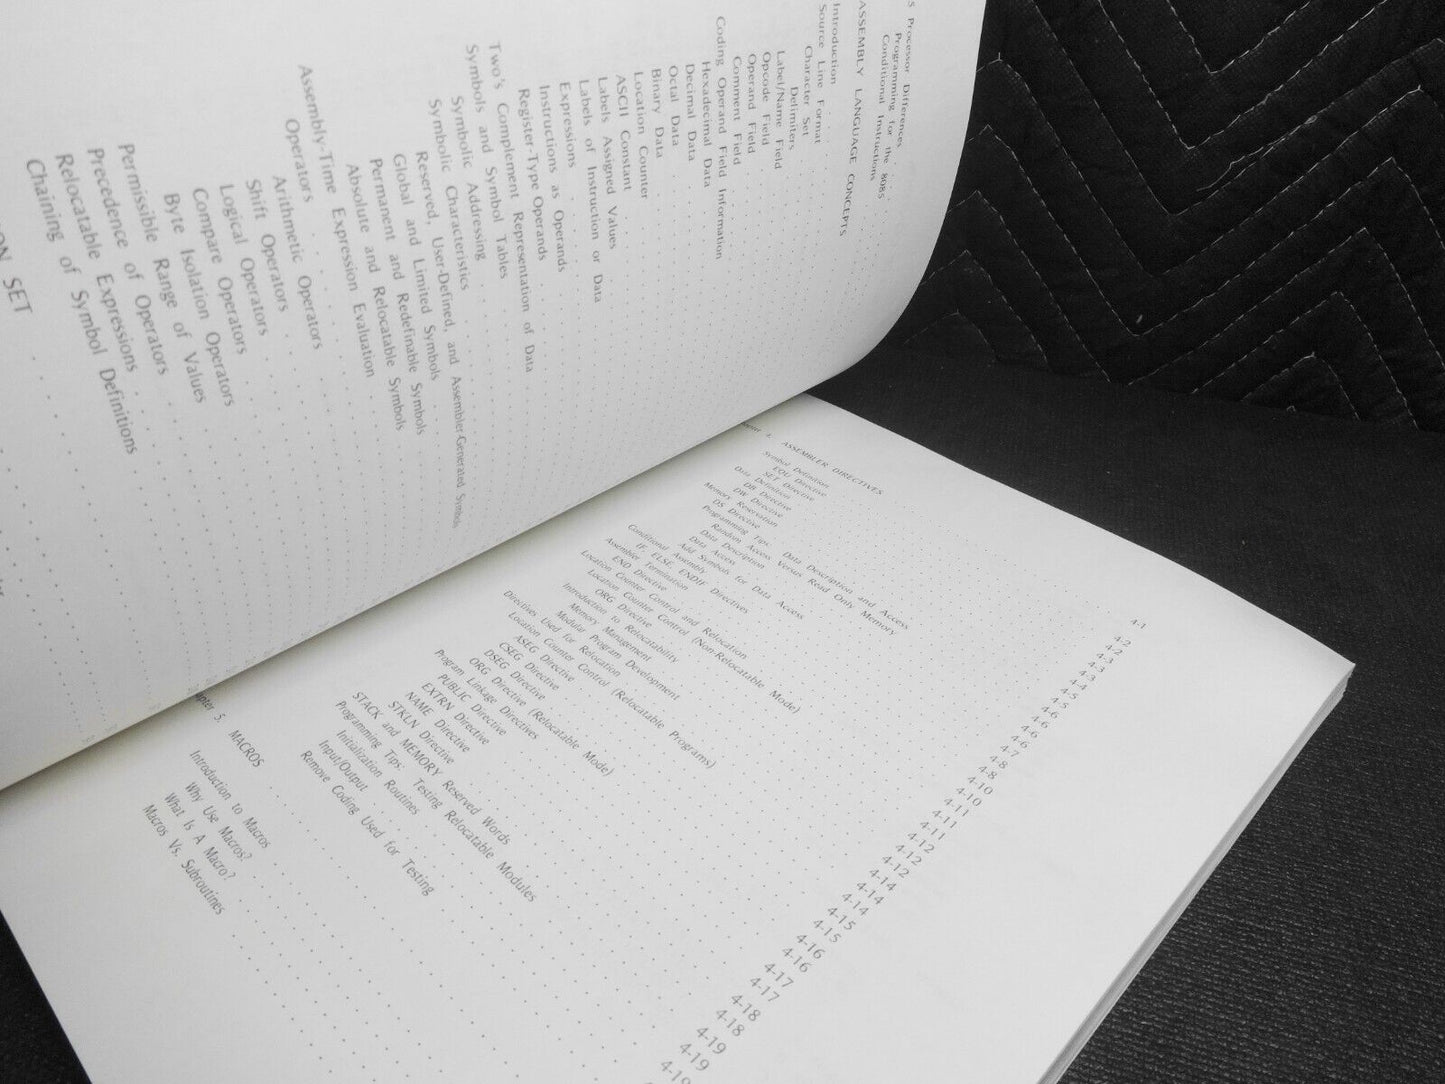 5 Processor Differences
Programming for the 8085
Conditional Instructions
ASSEMBLY LANGUAGE CONCEPTS
Introduction
Source Line Format
Character Set
Delimiters
Label/Name Field
Opcode Field
Operand Field
Comment Field
Coding Operand Field Information
Hexadecimal Data
Decimal Data
Octal Data
Binary Data
Location Counter
ASCII Constant
Labels Assigned Values
Labels of Instruction or Data
Expressions
Instructions as Operands
Register-Type Operands
Two's Complement Representation of Data
Symbols and Symbol Tables
Symbolic Addressing
Symbolic Characteristics
Reserved, User-Defined, and Assembler-Generated Symbols
Global and Limited Symbols
Permanent and Redefinable Symbols
Absolute and Relocatable Symbols
Assembly-Time Expression Evaluation
Operators
Arithmetic Operators
Shift Operators
Logical Operators
Compare Operators
Byte Isolation Operators
Permissible Range of Values
Precedence of Operators
Relocatable Expressions
Chaining of Symbol Definitions
ON SET
4. ASSEMBLER DIRECTIVES 4-1
Symbol Definition 4-2
EQU Directive 4-2
SET Directive 4-3
Data Definition 4-3
DB Directive 4-3
DW Directive 4-4
Memory Reservation 4-5
DS Directive 4-5
Programming Tips: Data Description and Access 4-6
Random Access Versus Read Only Memory 4-6
Data Description 4-6
Data Access 4-6
Add Symbols for Data Access 4-7
Conditional Assembly 4-8
IF, ELSE, ENDIF Directives 4-8
Assembler Termination 4-10
END Directive 4-10
Location Counter Control and Relocation 4-11
Location Counter Control (Non-Relocatable Mode) 4-11
ORG Directive 4-11
Introduction to Relocatability 4-12
Memory Management 4-12
Modular Program Development 4-12
Directives Used for Relocation 4-14
Location Counter Control (Relocatable Programs) 4-14
ASEG Directive 4-14
CSEG Directive 4-15
DSEG Directive 4-15
ORG Directive (Relocatable Mode) 4-16
Program Linkage Directives 4-16
PUBLIC Directive 4-17
EXTRN Directive 4-17
NAME Directive 4-18
STKLN Directive 4-18
STACK and MEMORY Reserved Words 4-19
Programming Tips: Testing Relocatable Modules 4-19
Initialization Routines 4-19
Input/Output
Remove Coding Used for Testing
5. MACROS
Introduction to Macros
Why Use Macros?
What Is A Macro?
Macros Vs. Subroutines